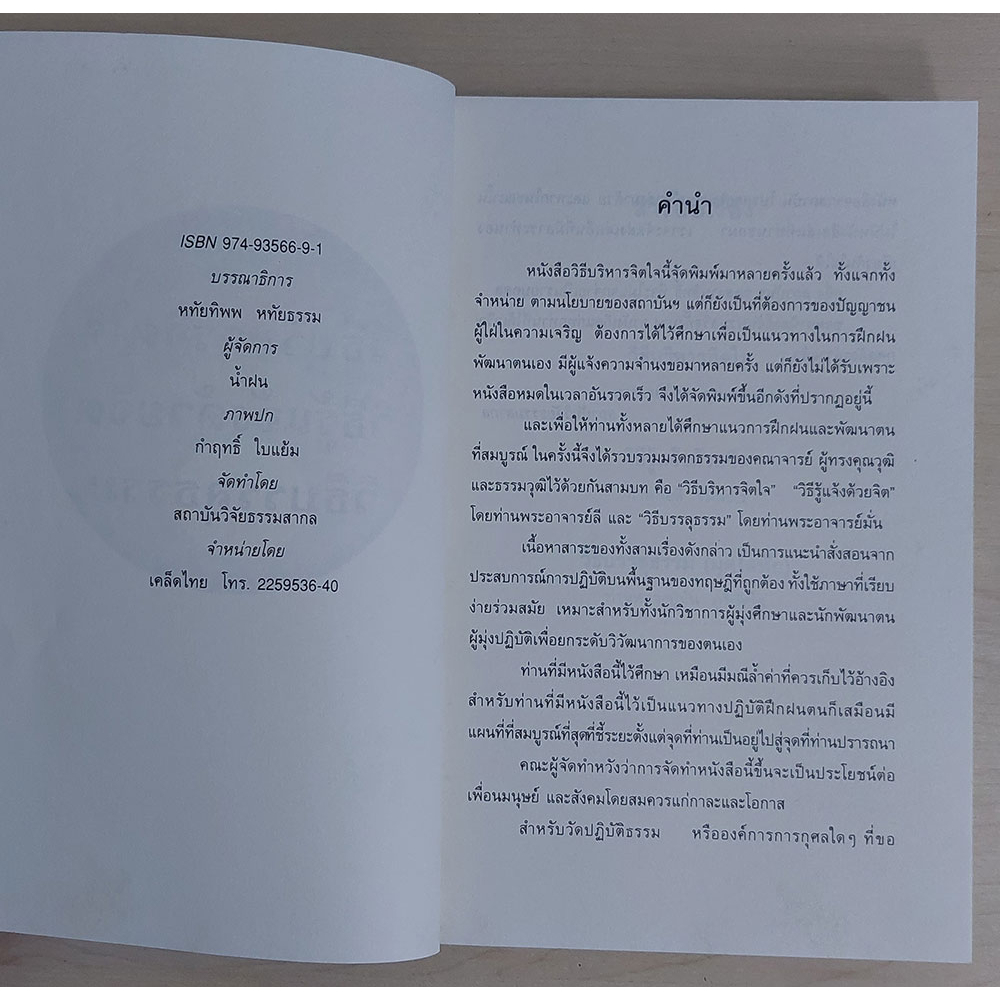 ISBN 974-93566-9-1
บรรณาธิการ
หทัยทิพพ หทัยธรรม
ผู้จัดการ
น้ำฝน
ภาพปก
กำฤทธิ์ ใบแย้ม
จัดทำโดย
สถาบันวิจัยธรรมสากล
จำหน่ายโดย
เคล็ดไทย โทร. 2259536-40
คำนำ
หนังสือวิธีบริหารจิตใจนี้จัดพิมพ์มาหลายครั้งแล้ว ทั้งแจกทั้ง
จำหน่าย ตามนโยบายของสถาบันฯ แต่ก็ยังเป็นที่ต้องการของปัญญาชน
ผู้ใฝ่ในความเจริญ ต้องการได้ไว้ศึกษาเพื่อเป็นแนวทางในการฝึกฝน
พัฒนาตนเอง มีผู้แจ้งความจำนงขอมาหลายครั้ง แต่ก็ยังไม่ได้รับเพราะ
หนังสือหมดในเวลาอันรวดเร็ว จึงได้จัดพิมพ์ขึ้นอีกดังที่ปรากฏอยู่นี้
และเพื่อให้ท่านทั้งหลายได้ศึกษาแนวการฝึกฝนและพัฒนาตน
ที่สมบูรณ์ ในครั้งนี้จึงได้รวบรวมมรดกธรรมของคณาจารย์ ผู้ทรงคุณวุฒิ
และธรรมวุฒิไว้ด้วยกันสามบท คือ “วิธีบริหารจิตใจ” “วิธีรู้แจ้งด้วยจิต”
โดยท่านพระอาจารย์ลี และ “วิธีบรรลุธรรม” โดยท่านพระอาจารย์มั่น
เนื้อหาสาระของทั้งสามเรื่องดังกล่าว เป็นการแนะนำสั่งสอนจาก
ประสบการณ์การปฏิบัติบนพื้นฐานของทฤษฎีที่ถูกต้อง ทั้งใช้ภาษาที่เรียบ
ง่ายร่วมสมัย เหมาะสำหรับทั้งนักวิชาการผู้มุ่งศึกษาและนักพัฒนาตน
ผู้มุ่งปฏิบัติเพื่อยกระดับวิวัฒนาการของตนเอง
ท่านที่มีหนังสือนี้ไว้ศึกษา เหมือนมีมณีล้ำค่าที่ควรเก็บไว้อ้างอิง
สำหรับท่านที่มีหนังสือนี้ไว้เป็นแนวทางปฏิบัติฝึกฝนตนก็เสมือนมี
แผนที่ที่สมบูรณ์ที่สุดที่ชี้ระยะตั้งแต่จุดที่ท่านเป็นอยู่ไปสู่จุดที่ท่านปรารถนา
คณะผู้จัดทำหวังว่าการจัดทำหนังสือนี้ขึ้นจะเป็นประโยชน์ต่อ
เพื่อนมนุษย์ และสังคมโดยสมควรแก่กาละและโอกาส
สำหรับวัดปฏิบัติธรรม หรือองค์การการกุศลใดๆ ที่ขอ